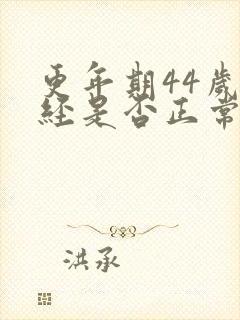 更年期44歲
經是否正常
洪承